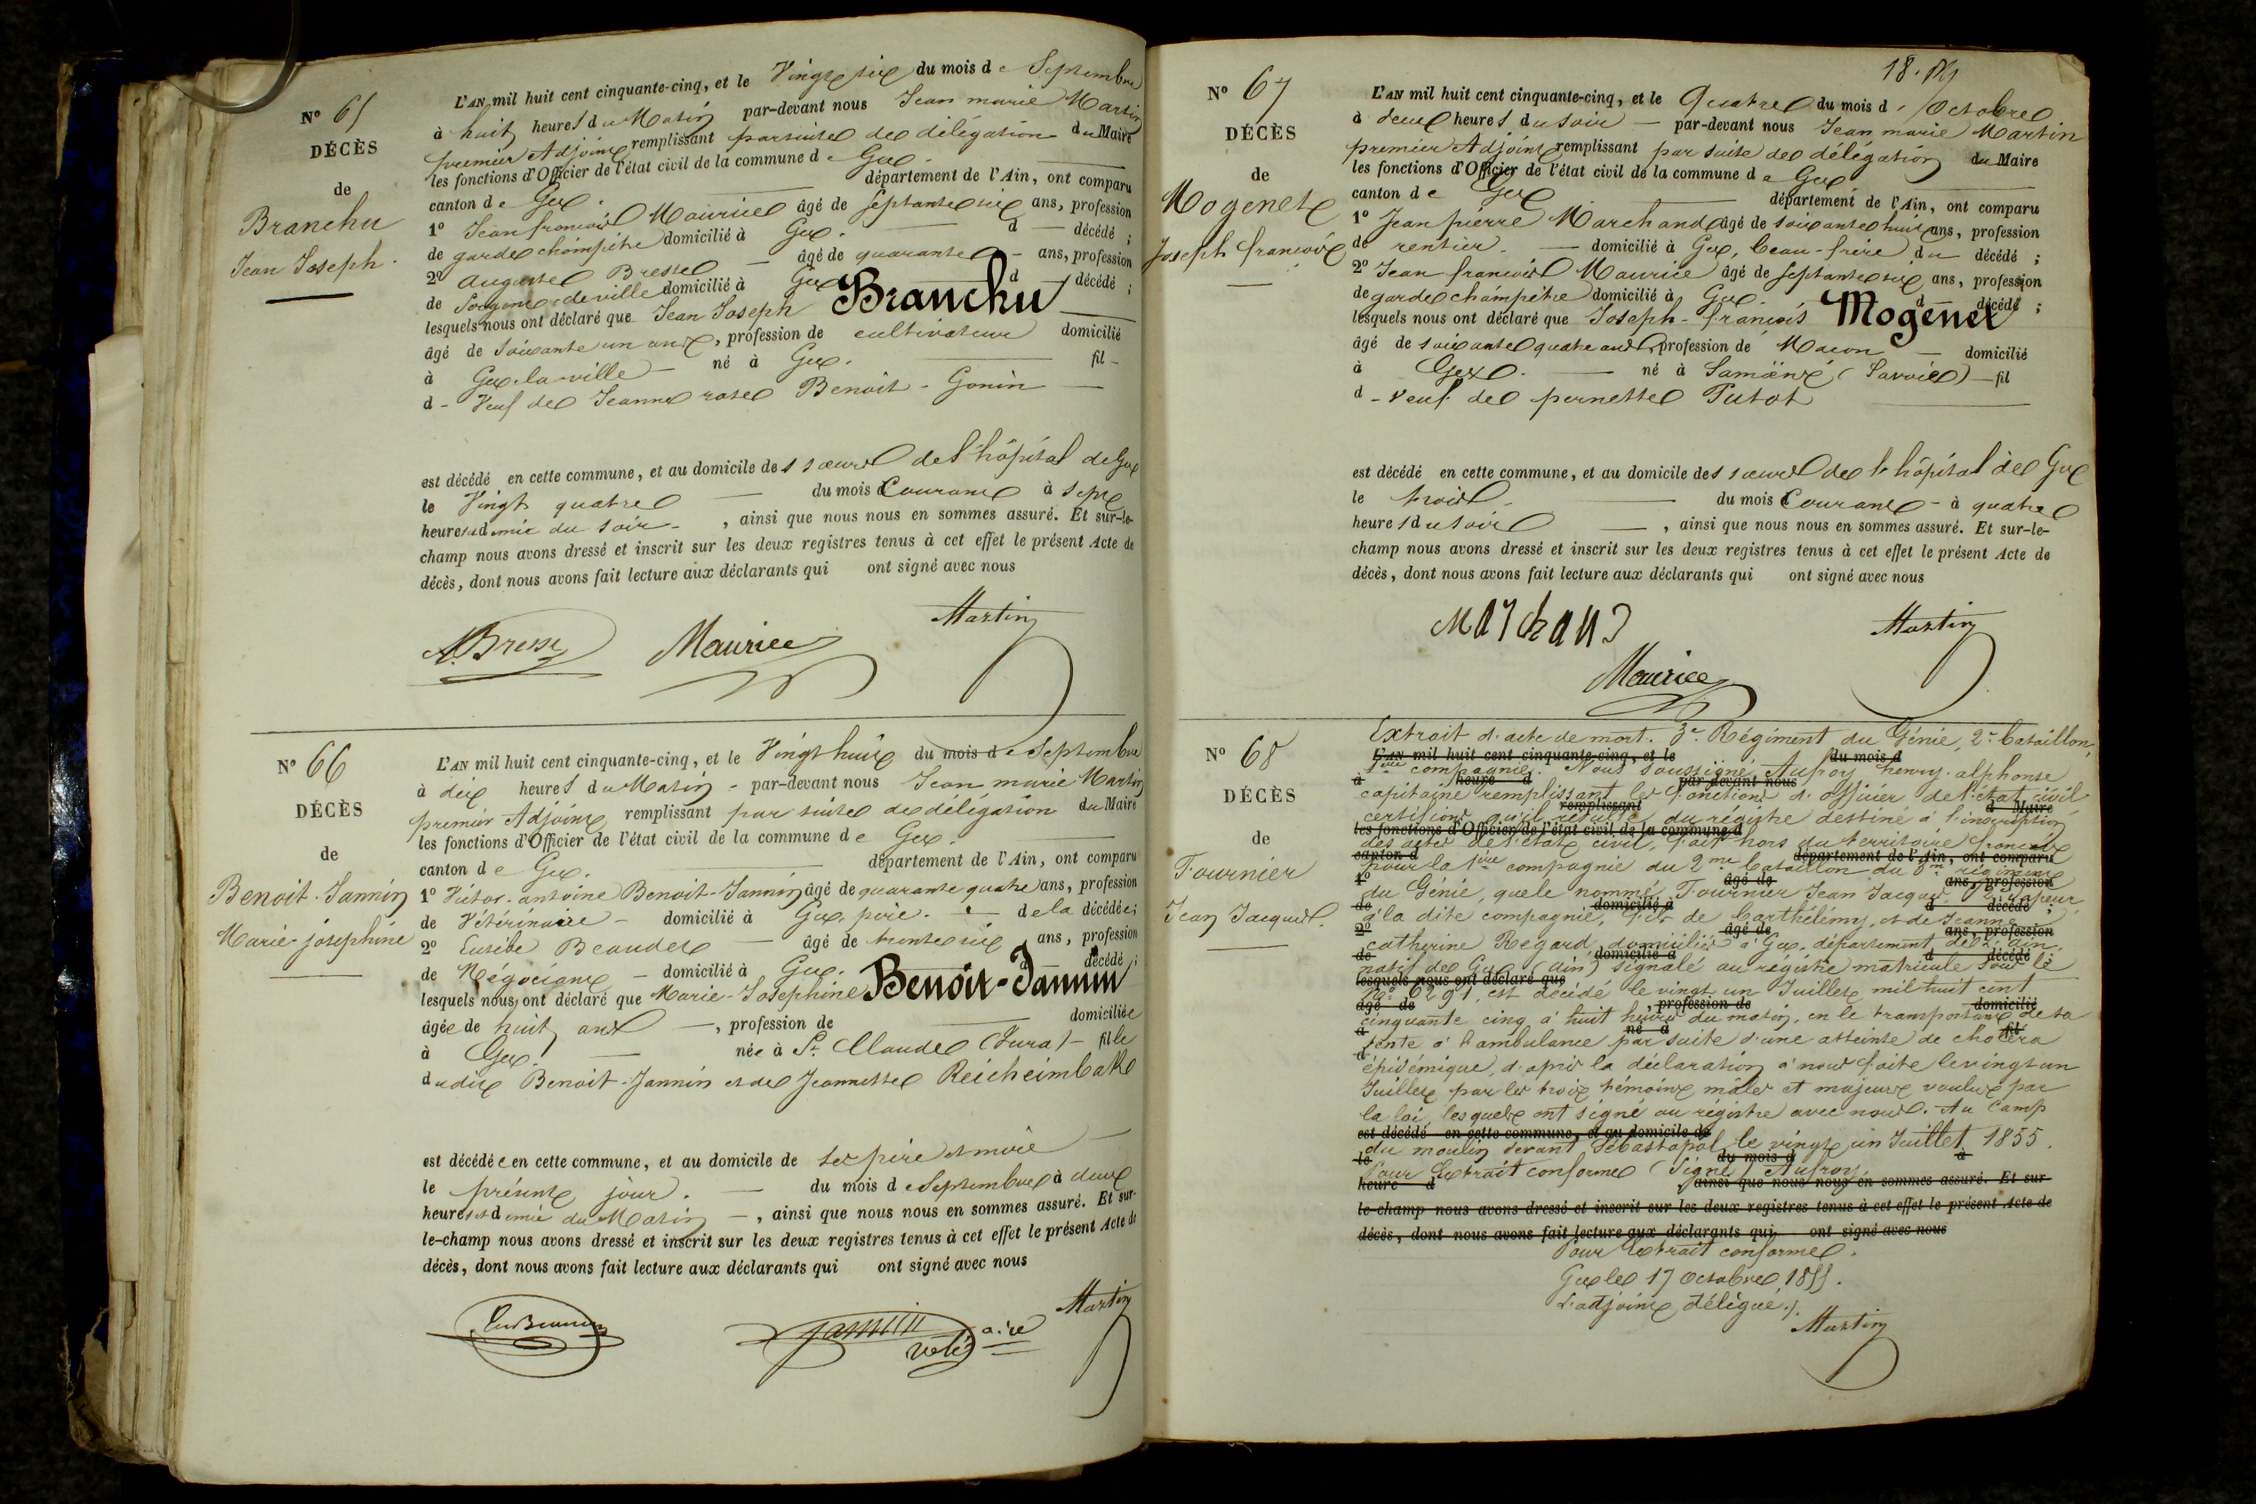 N° 65
DÉCÈS
de
Branchu
Jean Joseph.
L'AN mil huit cent cinquante-cinq, et le Vingt six du mois de Septembre
à huit heures du Matin par-devant nous Jean marie Martin
premier Adjoint remplissant par suite de délégation du Maire
les fonctions d'Officier de l'état civil de la commune de Gex.
canton de Gex. département de l'Ain, ont comparu
1° Jean françois Maurice âgé de septante six ans, profession
de garde champêtre domicilié à Gex. d décédé ;
2° Auguste Bresse âgé de quarante ans, profession
de Sergent de ville domicilié à Gex d décédé ;
lesquels nous ont déclaré que Jean Joseph Branchu
âgé de soixante un ans, profession de cultivateur domicilié
à Gex-la-ville né à Gex. fil
d - Veuf de Jeanne rose Benoit-Gonin
est décédé en cette commune, et au domicile des sœurs de l'hôpital de Gex
le Vingt quatre du mois Courant à sept
heures et demie du soir. , ainsi que nous nous en sommes assuré. Et sur-le-
champ nous avons dressé et inscrit sur les deux registres tenus à cet effet le présent Acte de
décès, dont nous avons fait lecture aux déclarants qui ont signé avec nous
A. Bresse Maurice Martin
N° 66
DÉCÈS
de
Benoit-Jannin
Marie-joséphine
L'AN mil huit cent cinquante-cinq, et le Vingt huit du mois de Septembre
à dix heures du Matin - par-devant nous Jean marie Martin
premier Adjoint remplissant par suite de délégation du Maire
les fonctions d'Officier de l'état civil de la commune de Gex.
canton de Gex. département de l'Ain, ont comparu
1° Victor-antoine Benoit-Jannin âgé de quarante quatre ans, profession
de Vétérinaire - domicilié à Gex, père. de la décédée;
2° Eusèbe Beaudet âgé de trente six ans, profession
de Négociant - domicilié à Gex. d décédé ;
lesquels nous ont déclaré que Marie-Josephine Benoit-Jannin
âgée de huit ans , profession de domiciliée
à Gex. née à St. Claude (Jura) - fille
dudit Benoit-Jannin et de Jeannette Reicheimbak
est décédée en cette commune, et au domicile de ses père et mère
le présent jour. du mois de Septembre à deux
heures et demie du Matin , ainsi que nous nous en sommes assuré. Et sur-
le-champ nous avons dressé et inscrit sur les deux registres tenus à cet effet le présent Acte de
décès, dont nous avons fait lecture aux déclarants qui ont signé avec nous
Jannin Martin
18.
N° 67
DÉCÈS
de
Mogenet
Joseph françois
L'AN mil huit cent cinquante-cinq, et le Quatre du mois d'Octobre
à deux heures du soir - par-devant nous Jean marie Martin
premier Adjoint remplissant par suite de délégation du Maire
les fonctions d'Officier de l'état civil de la commune de Gex
canton de Gex département de l'Ain, ont comparu
1° Jean pierre Marchand âgé de soixante huit ans, profession
de rentier. - domicilié à Gex, beau-frère du décédé ;
2° Jean françois Maurice âgé de septante six ans, profession
de garde champêtre domicilié à Gex. d décédé ;
lesquels nous ont déclaré que Joseph-françois Mogenet
âgé de soixante quatre ans, profession de Maçon domicilié
à Gex. né à Samoëns (Savoie) - fil
d - Veuf de pernette Putot
est décédé en cette commune, et au domicile des sœurs de l'hôpital de Gex
le trois. du mois Courant - à quatre
heures du soir , ainsi que nous nous en sommes assuré. Et sur-le-
champ nous avons dressé et inscrit sur les deux registres tenus à cet effet le présent Acte de
décès, dont nous avons fait lecture aux déclarants qui ont signé avec nous
Marchand Martin
Maurice
N° 68
DÉCÈS
de
Fournier
Jean Jacques.
Extrait d'acte de mort. 3e. Régiment du Génie, 2e. bataillon,
L'AN mil huit cent cinquante-cinq, et le du mois d
1ère compagnie. Nous soussigné Aufroy henry-alphonse
à heure d par-devant nous
capitaine remplissant les fonctions d'officier de l'état civil
remplissant d Maire
certifions qu'il résulte du registre destiné à l'inscription
les fonctions d'Officier de l'état civil de la commune d
des actes de l'état civil, fait hors du territoire français
canton d département de l'Ain, ont comparu
pour la 1ère compagnie du 2me bataillon du 3me régiment
1° âgé de ans, profession
du Génie, que le nommé Fournier Jean Jacques, Sapeur
de domicilié à d décédé ;
à la dite compagnie, fils de barthélémy, et de Jeanne
2° âgé de ans, profession
catherine Régard, domiciliés à Gex, département de l'ain,
de domicilié à d décédé ;
natif de Gex (Ain) signalé au régistre matricule sous le
lesquels nous ont déclaré que
No. 6291, est décédé le vingt un Juillet mil huit cent
âgé de , profession de domicilié
cinquante cinq à huit heures du matin, en le transportant de sa
à né à fil
tente à l'ambulance par suite d'une atteinte de choléra
d
épidémique, d'après la déclaration à nous faite le vingt un
Juillet par les trois témoins mâles et majeurs voulus par
la loi, lesquels ont signé au régistre avec nous. Au camp
est décédé en cette commune, et au domicile de
du moulin devant Sébastopol le vingt un Juillet 1855.
le du mois d à
Pour Extrait conforme (Signé) Aufroy.
heure d ainsi que nous nous en sommes assuré. Et sur-
le-champ nous avons dressé et inscrit sur les deux registres tenus à cet effet le présent Acte de
décès, dont nous avons fait lecture aux déclarants qui ont signé avec nous
Pour Extrait conforme.
Gex le 17 Octobre 1855.
L'adjoint délégué.
Martin